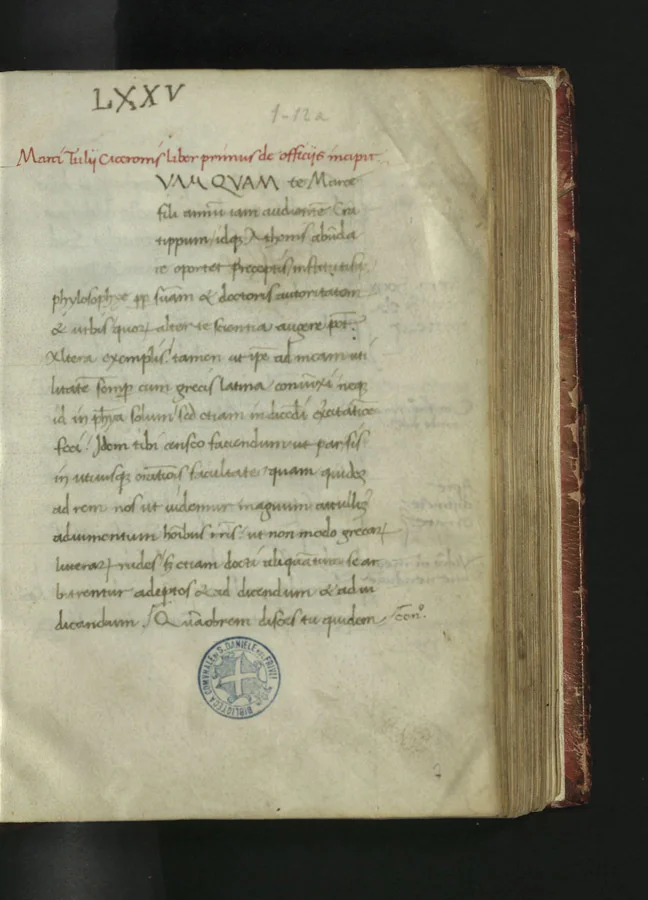 LXXV
1-12a
Marci Tulij Ciceronis liber primus de officijs incipit
VAM QVAM te Marce
fili annũ iam audientẽ Cra
tippum, idq; Athenis abũda
re oportet preceptis institutisq;
phylosophye ꝓp suãm & doctoris autoritatem
& urbis quoꝝ alter te scientia augere pot̃:
Altera exemplis: tamen ut ip̃e ad meam uti
litatẽ semꝑ cum grecis latina coniũxi neq;
id in ph̃ya solum sed etiam in dicẽdi exẽrcitatiõe
feci: Idem tibi censeo faciendum ut par sis
in utriusq; orationis facultate, quam quidẽ
ad rem nos ut uidemur magnum attulimꝰ
adiumentum hoĩbus nr̃is: ut non modo grecaꝝ
litteraꝝ rudes sȝ etiam docti aliquãtum se ar
bitrentur adeptos & ad dicendum & ad iu
dicandum. Quãobrem disces tu quidem
BIBLIOTECA COMUNALE DI S. DANIELE DEL FRIULI